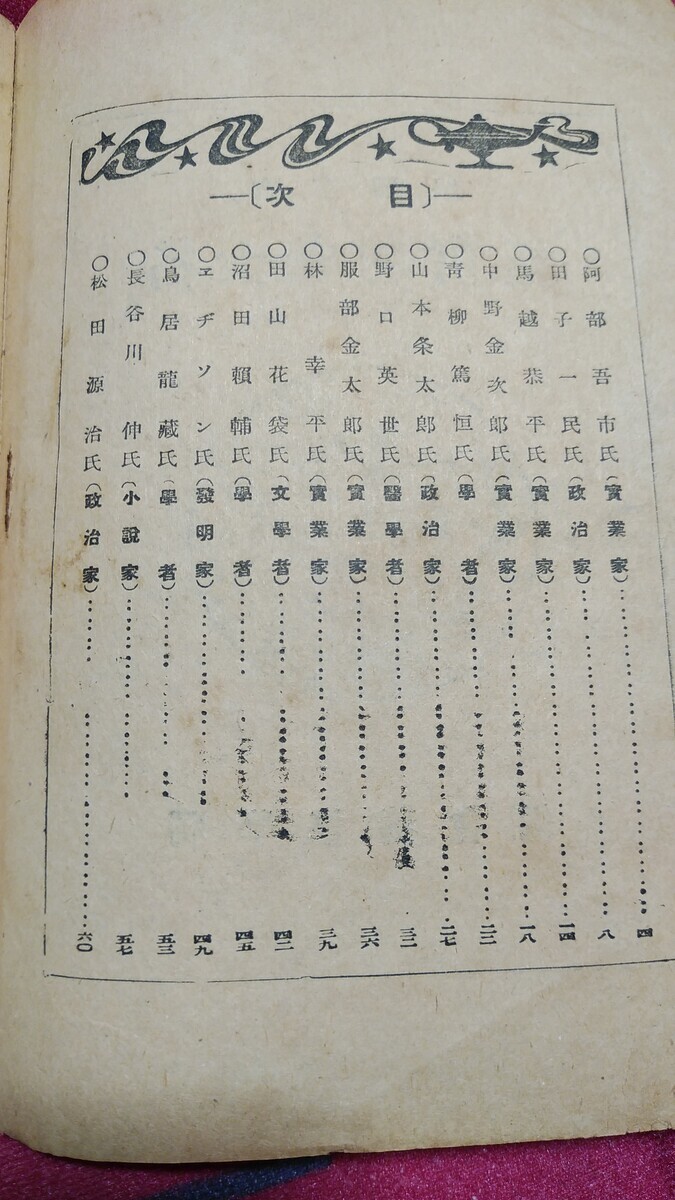 〔目次〕
○阿部吾市氏(實業家)四
○田子一民氏(政治家)八
○馬越恭平氏(實業家)一四
○中野金次郎氏(實業家)一八
○靑柳篤恒氏(學者)二二
○山本条太郎氏(政治家)二七
○野口英世氏(醫學者)三二
○服部金太郎氏(實業家)三六
○林幸平氏(實業家)三九
○田山花袋氏(文學者)四二
○沼田頼輔氏(學者)四五
○ヱヂソン氏(發明家)四九
○鳥居龍藏氏(學者)五三
○長谷川伸氏(小說家)五七
○松田源治氏(政治家)六〇